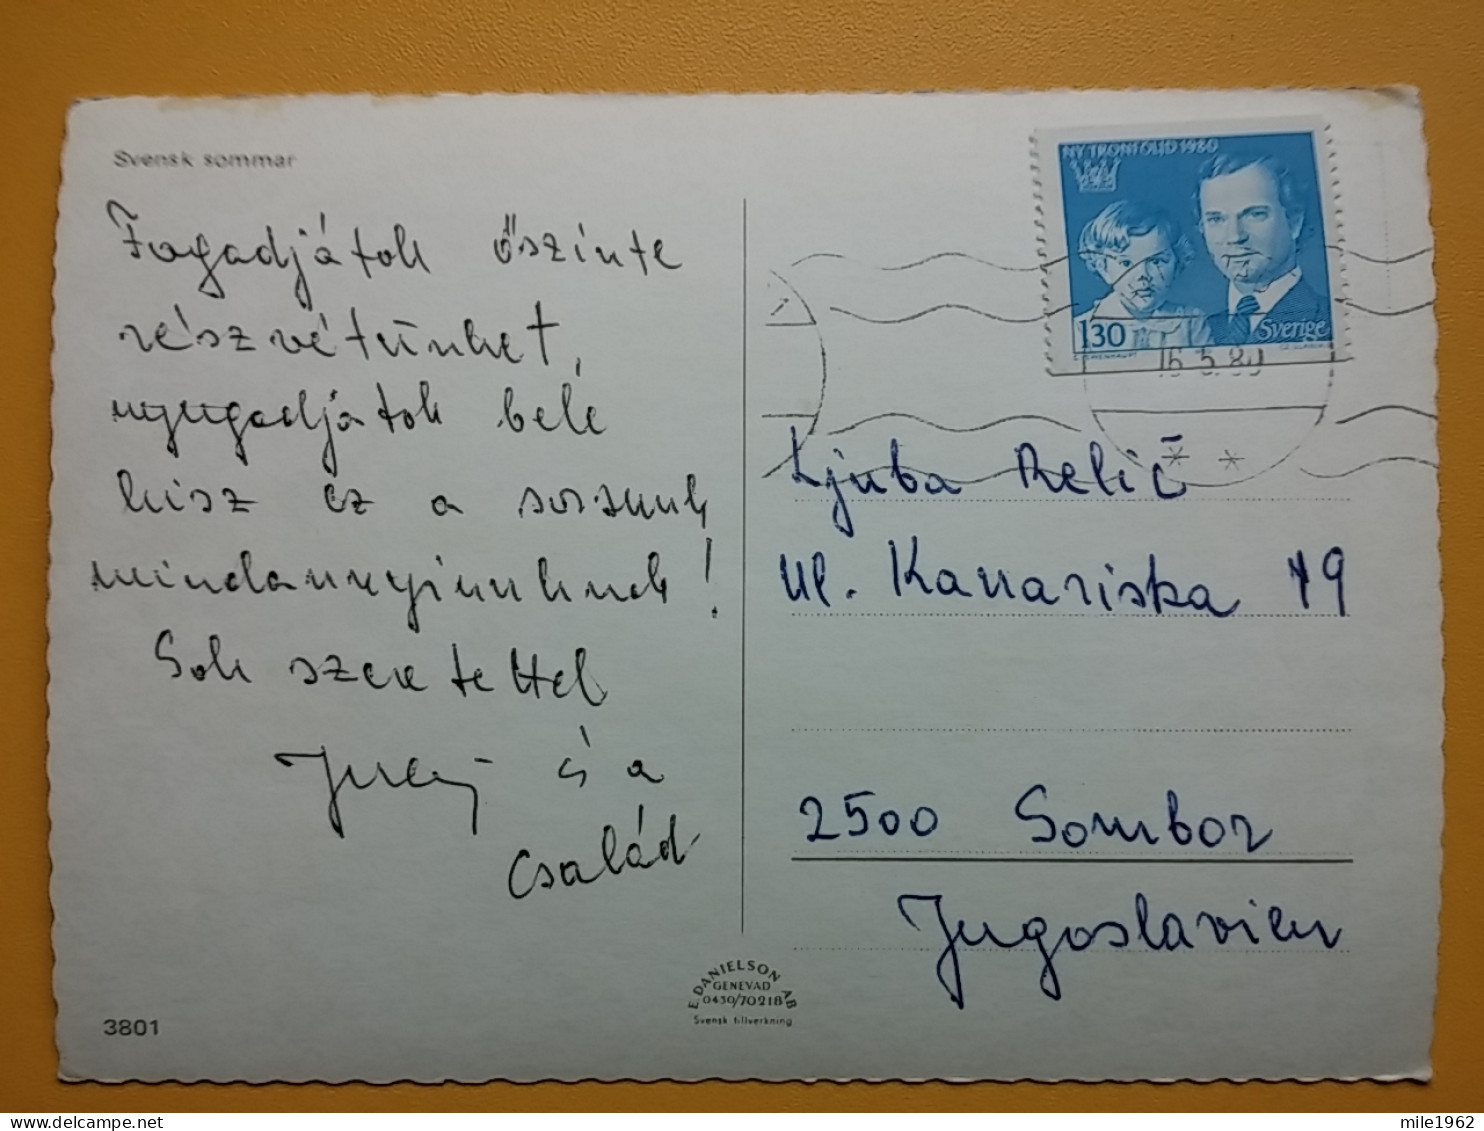 Svensk sommar
NY TRONFÖLJD 1980
130 Sverige
16.5.80
Fogadjátok őszinte
részvétünket,
nyugodjatok bele
hisz ez a sorsunk
mindannyiunknak!
Sok szeretettel
és a
család
Ljuba Relić
Ul. Kanariska 19
2500 Sombor
Jugoslavien
E. DANIELSON AB
GENEVAD
0430/70218
Svensk tillverkning
3801
mile1962